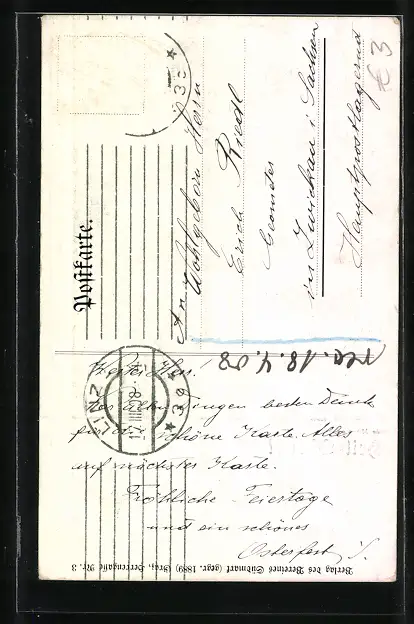 Postkarte.
An
Wohlgeboren Herrn
Erich Riedl
Geometer
in Zwickau i Sachsen
Hauptpostlagernd
€ 3
18.4.08
LINZ
17.III.08
* 3a *
* 3a
Bester Herr!
besten Dank
für die schöne Karte. Alles
auf nächster Karte.
Fröhliche Feiertage
und ein schönes
Osterfest
Verlag des Vereines Südmark (gegr. 1889) Graz, Herrengasse Nr. 3